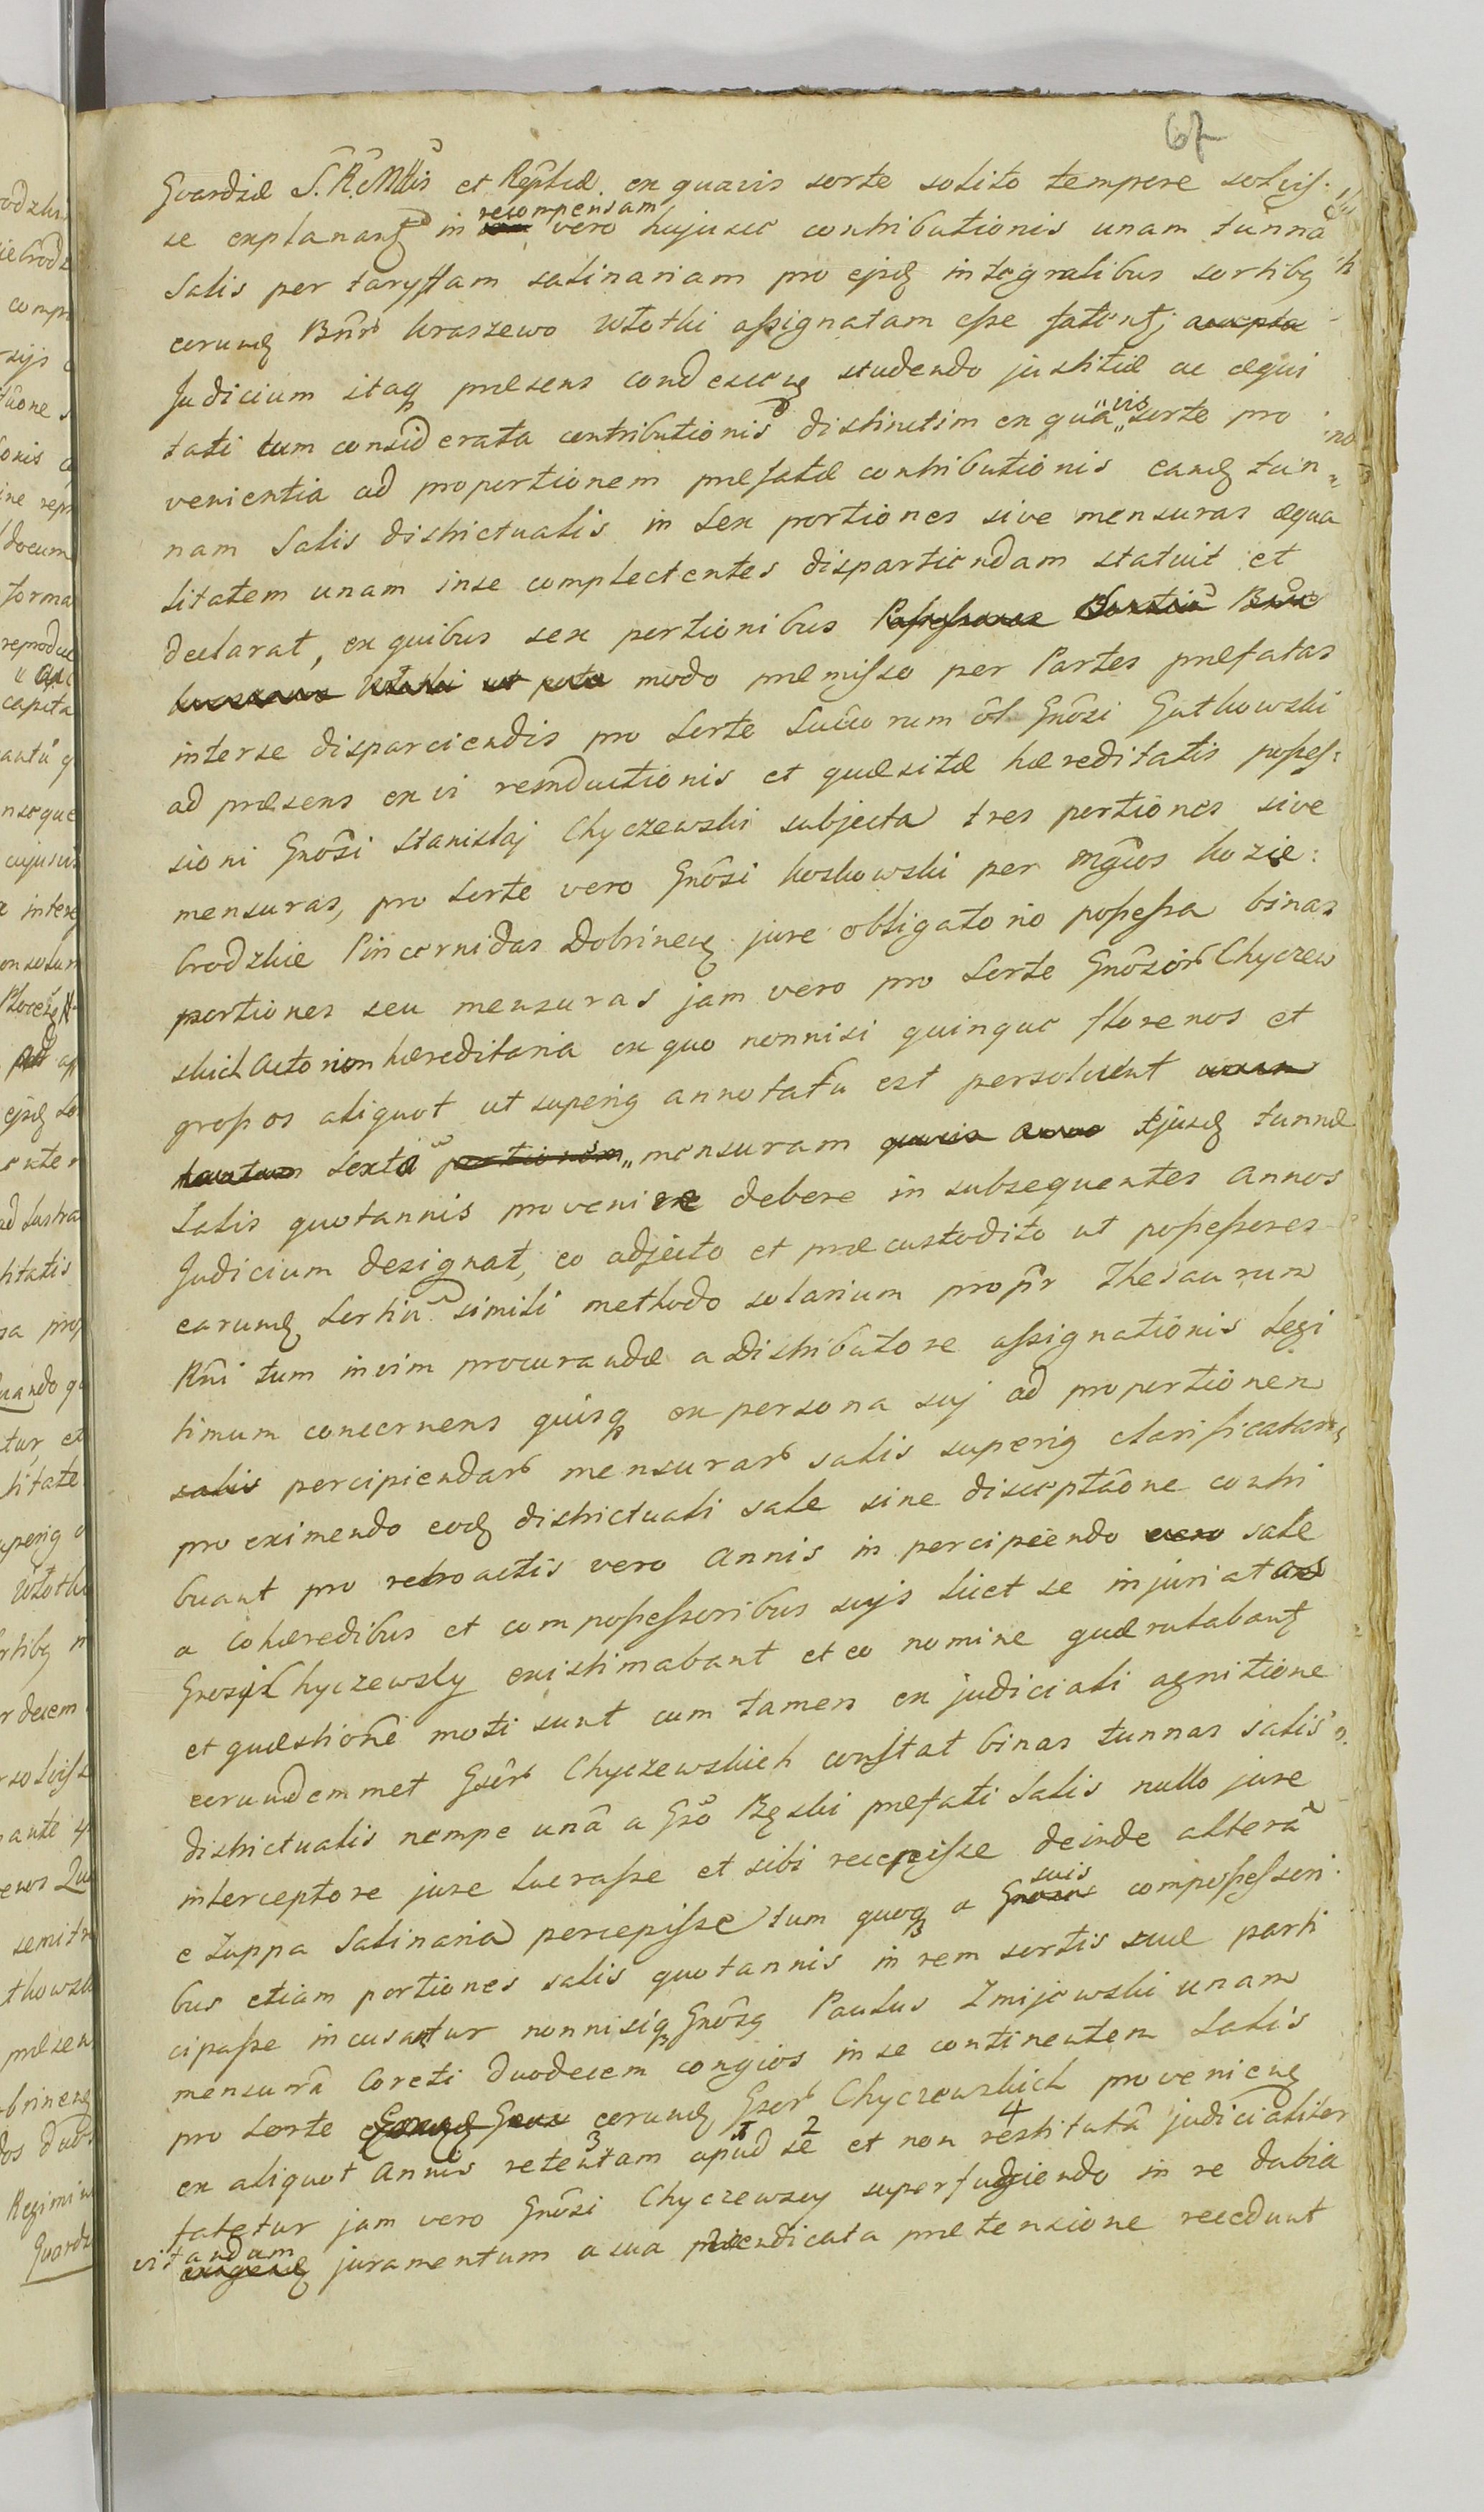 67
Gvardiæ S.R.Mttis et Reiptcæ. ex quavis sorte solito tempore solvis:
se explanant in recompensam vero hujusce contributionis unam tunnã
Salis per taryffam salinariam pro ejsdꝫ integralibus sortibꝫ
eorumdꝫ Bnõr Kraszewo Wtothi assignatam esse fatentꝫ
Judicium itaqꝫ præsens condescenꝫ studendo justitiæ ac æqui
tati tum considerata contributionis distinctim ex quavis sorte pro
venientia ad proportionem præfatæ contributionis eandꝫ tun
nam Salis districtualis in sex portiones sive mensuras æqua
litatem unam inse complectentes dispartiendam statuit et
declarat, ex quibus sex portionibus
modo præmisso per Partes præfatas
interse disparciendis pro Sorte Succõrum ol Gnõsi Guthowski
ad præsens exvi reinductionis et quæsitæ hæreditatis posses:
sioni Gnõsi Stanislaj Chyczewski subjecta tres portiones sive
mensuras, pro Sorte vero Gnõsi Koskowski per Mgcos Kozie:
brodzkie Pincernidas Dobrinenꝫ jure obligatorio possessa binas
portiones seu mensuras jam vero pro Sorte Gnõsõr Chyczew
skich Actorum hæreditaria ex quo nonnisi quinque florenos et
grossos aliquot ut superiꝫ annotatũ est persolvent
Sextã mensuram ejusdꝫ tunnæ
Salis quotannis provenire debere in subsequentes Annos
Judicium designat, eo adjecto et præcustodito ut possessores
earumdꝫ Sortiũ simili methodo solarium propr Thesaurum
Rñi tum invim procurandæ a Distributore assignationis legi
timum concernens quisqꝫ ex persona suj ad proportionem
percipiendar mensurar salis superiꝫ clarificatam
pro eximendo eodꝫ districtuali sale sine disceptãone contri
buant pro retroactis vero Annis in percipiendo sale
a cohæredibus et compossessoribus suis licet se injuriatos
Gnosi Chyczewscy existimabant et eo nomine quærulabantꝫ
et quæstionẽ moti sunt cum tamen ex judiciali agnitione
eorundemmet Gsõr Chyczewskich constat binas tunnas salis
districtualis nempe unã a Gso Bꝫski præfati Salis nullo jure
interceptore jure lucrasse et sibi recepisse deinde alterã
e Zuppa Salinaria percepisse tum quoqꝫ a suis compossessori
bus etiam portiones salis quotannis in rem sortis suæ parti
cipasse incusantur nonnisiqꝫ Gnõsꝫ Paulus Zmijewski unam
mensurã Coreti duodecem congios inse continentem Salis
pro Sorte eorumdꝫ Gsor Chyczewskich provenienꝫ
ex aliquot Annis retentam apud se et non restitutã judicialiter
fatetur jam vero Gnõsi Chyczewscy superfugiendo in re dubia
vitandum juramentum a sua prætensione recedunt